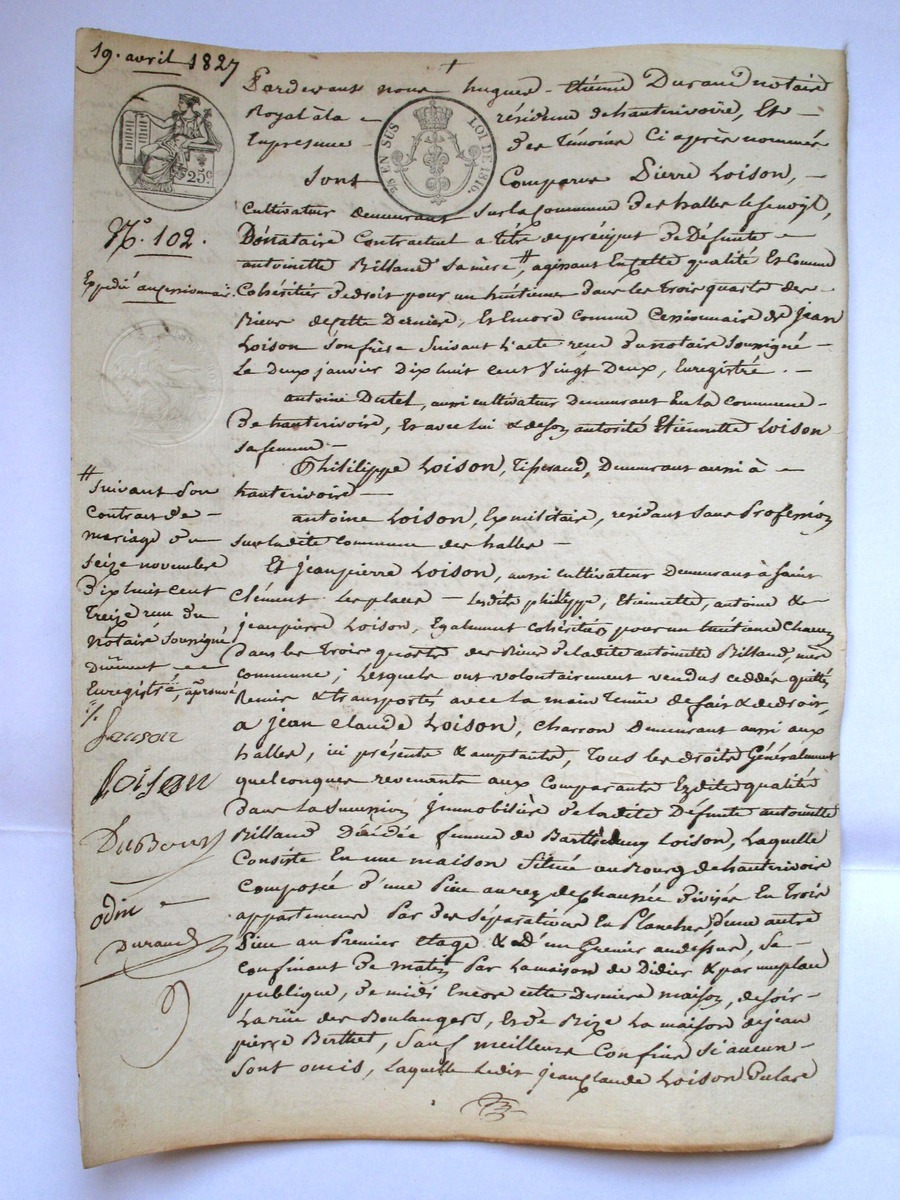 19. avril 1827
+
Pardevant nous hugues - étienne Durand notaire
Royal à la - résidence de hauterivoire, Et -
En presence - des Témoins Ci après nommés
25 EN SUS LOI DE 1816.
25c
Sont Comparus Pierre Loison, -
Cultivateur demeurant sur la Commune des halles le fenoyl,
N.o 102.
Donataire Contractuel a titre de préciput De Défunte -
antoinette Billaud sa mère #, agissant En cette qualité Et Comme
Expédié au cessionnaire.
Cohéritier De droit pour un huitième dans les Trois quarts des -
Biens de cette Derniere, Et Encore Comme Cessionnaire de Jean
Loison son frère suivant L'acte reçu Du notaire soussigné -
Le deux janvier Dix huit cent Vingt Deux, Enregistré. -
antoine Dutel, aussi cultivateur Demeurant En la commune -
De hauterivoire, Et avec lui & de son autorité Etiennette Loison
sa femme -
Phililippe Loison, Tisserand, Demeurant aussi à -
hauterivoire -
antoine Loison, Ex militaire, residant sans Profession
sur la dite Commune des halles -
Et jean pierre Loison, aussi cultivateur Demeurant à Saint
Clément les places - Lesdits philippe, Etiennette, antoine &
jean pierre Loison, Egalement cohéritiers pour un huitième Chacun
Dans les Trois quarts des Biens De ladite antoinette Billaud, mère
commune; Lesquels ont volontairement vendus ceddés quittés
Remis & transportés avec la main Tenüe de fait & de droit,
a jean claude Loison, Charron Demeurant aussi aux
halles, ici présent & acceptant, Tous les droits Généralement
quelconques revenants aux Comparants Ezdites qualités
Dans la Succession Immobilière De ladite Défunte antoinette
Billaud Décédée femme de Barthélemy Loison, Laquelle
Consiste En une maison Située au Bourg de hauterivoire
Composée D'une Pièce au rez de chaussée Divisée En Trois
appartements Par des Séparations En Planches, d'une autre
Pièce au Premier étage & d'un Grenier au dessus, Se -
confinant De matin Par La maison de Didier & par une place
publique, De midi Encore cette Derniere maison, de soir -
La rüe des Boulangers, Et De Bize La maison de jean
pierre Berthet, Sauf meilleurs Confins Si aucun -
Sont omis, Laquelle Ledit jean claude Loison
# Suivant son
Contrat de -
mariage du
seize novembre
Dix huit cent
Treize reçu du
Notaire soussigné
Düement
Enregistré, aprouvé
Loison
DuBour
odin
Durand